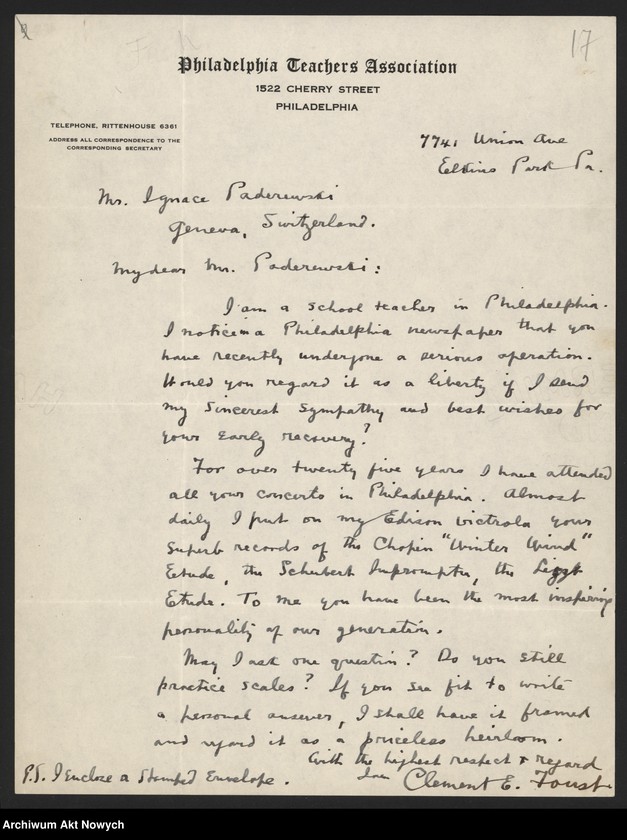 17
Philadelphia Teachers Association
1522 CHERRY STREET
PHILADELPHIA
TELEPHONE, RITTENHOUSE 6361
ADDRESS ALL CORRESPONDENCE TO THE
CORRESPONDING SECRETARY
7741 Union Ave
Elkins Park Pa.
Mr. Ignace Paderewski
Geneva, Switzerland.
My dear Mr. Paderewski:
I am a school teacher in Philadelphia.
I notice in a Philadelphia newspaper that you
have recently undergone a serious operation.
Would you regard it as a liberty if I send
my sincerest sympathy and best wishes for
your early recovery?
For over twenty five years I have attended
all your concerts in Philadelphia. Almost
daily I put on my Edison Victrola your
superb records of the Chopin "Winter Wind"
Etude, the Schubert Impromptu, the Liszt
Etude. To me you have been the most inspiring
personality of our generation.
May I ask one question? Do you still
practice scales? If you see fit to write
a personal answer, I shall have it framed
and regard it as a priceless heirloom.
With the highest respect & regard
I am Clement E. Foust
P.S. I Enclose a Stamped Envelope.
Archiwum Akt Nowych